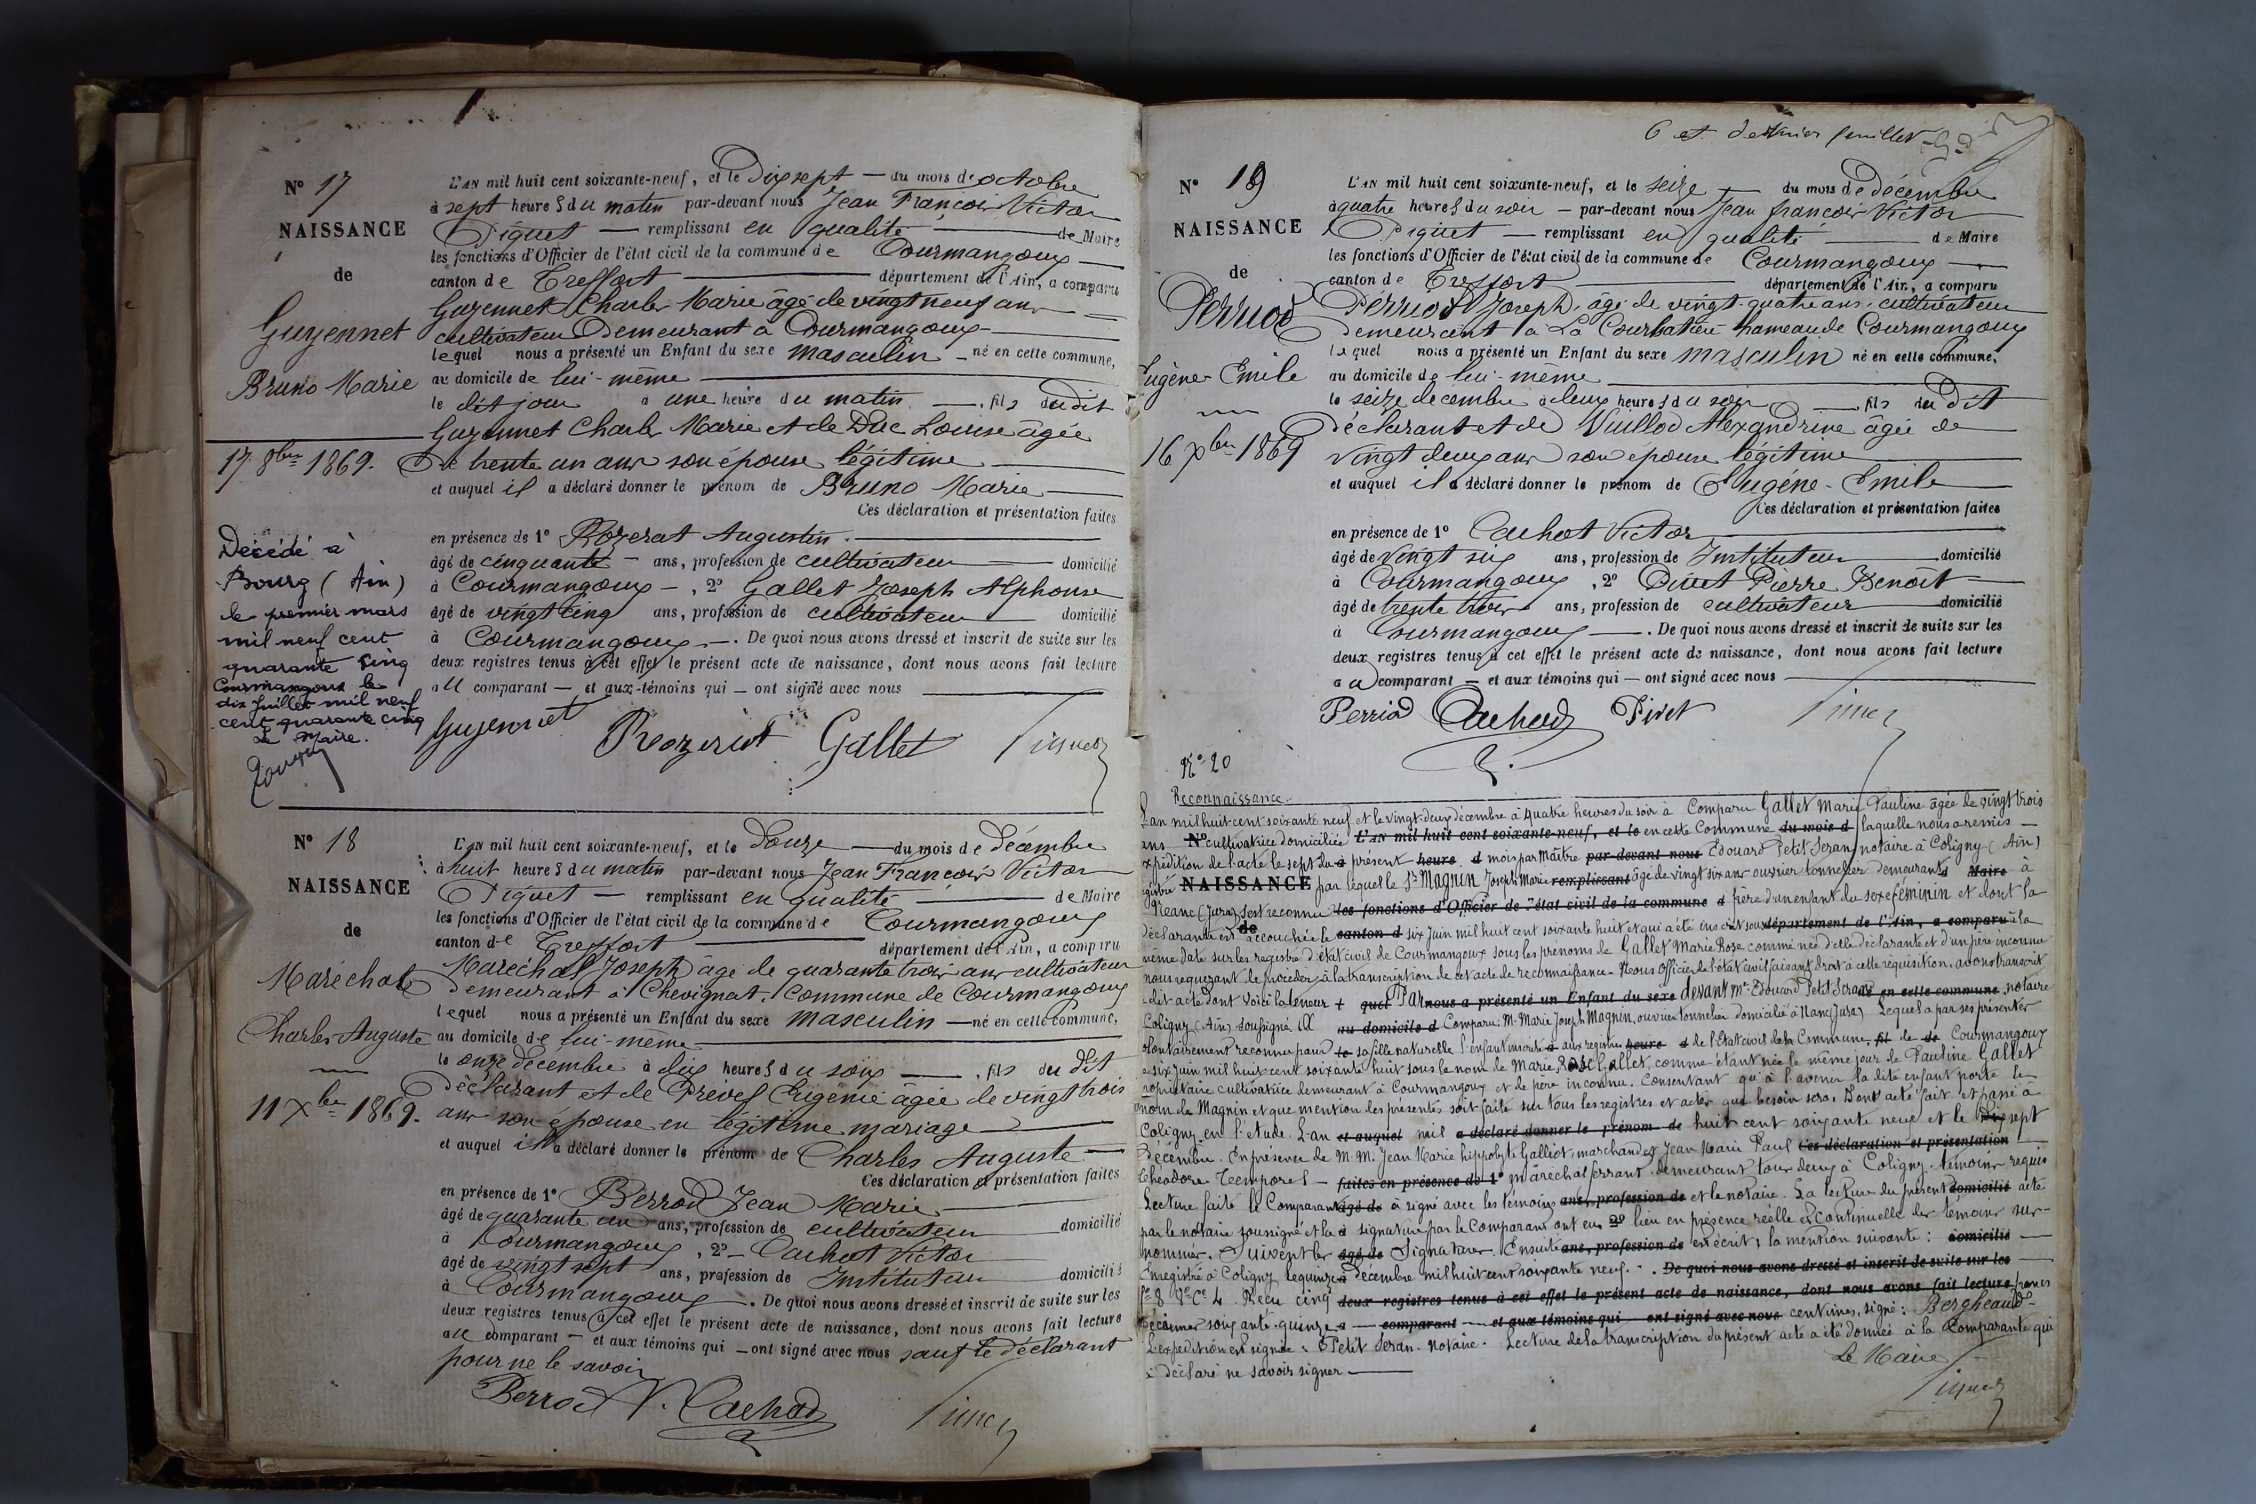 N° 17
NAISSANCE
de
Guyennet
Bruno Marie
17 8bre 1869.
Décédé à
Bourg (Ain)
le premier mars
mil neuf cent
quarante cinq
Courmangoux le
dix Juillet mil neuf
cent quarante cinq
Le Maire.
L'AN mil huit cent soixante-neuf, et le Dix sept — du mois de octobre
à sept heures du matin par-devant nous Jean François Victor
Piquet — remplissant en qualité — de Maire
les fonctions d'Officier de l'état civil de la commune de Courmangoux —
canton de Treffort — département de l'Ain, a comparu
Guyennet Charles Marie âgé de vingt neuf ans —
cultivateur Demeurant à Courmangoux —
lequel nous a présenté un Enfant du sexe masculin — né en cette commune,
au domicile de lui-même —
le dit jour à une heure du matin —, fils du dit
Guyennet Charles Marie et de Duc Louise âgée
De trente un ans son épouse légitime —
et auquel il a déclaré donner le prénom de Bruno Marie —
Ces déclaration et présentation faites
en présence de 1° Rozerat Augustin. —
âgé de cinquante — ans, profession de cultivateur — domicilié
à Courmangoux —, 2° Gallet Joseph Alphonse
âgé de vingt cinq ans, profession de cultivateur — domicilié
à Courmangoux —. De quoi nous avons dressé et inscrit de suite sur les
deux registres tenus à cet effet le présent acte de naissance, dont nous avons fait lecture
au comparant — et aux témoins qui — ont signé avec nous —
Guyennet Rozerat Gallet Piquet
N° 18
NAISSANCE
de
Maréchal
Charles Auguste
11 Xbre 1869.
L'AN mil huit cent soixante-neuf, et le Douze — du mois de décembre
à huit heures du matin par-devant nous Jean François Victor
Piquet — remplissant en qualité — de Maire
les fonctions d'Officier de l'état civil de la commune de Courmangoux
canton de Treffort — département de l'Ain, a comparu
Maréchal Joseph âgé de quarante trois ans cultivateur
demeurant à Chevignat, commune de Courmangoux
lequel nous a présenté un Enfant du sexe masculin — né en cette commune,
au domicile de lui-même —
le onze décembre à dix heures du soir —, fils du dit
déclarant et de Prevel Eugénie âgée de vingt trois
ans son épouse en légitime mariage —
et auquel il a déclaré donner le prénom de Charles Auguste —
Ces déclaration et présentation faites
en présence de 1° Berrod Jean Marie —
âgé de quarante un ans, profession de cultivateur — domicilié
à Courmangoux, 2° — Cachot Victor
âgé de vingt sept ans, profession de Instituteur — domicilié
à Courmangoux —. De quoi nous avons dressé et inscrit de suite sur les
deux registres tenus à cet effet le présent acte de naissance, dont nous avons fait lecture
au comparant — et aux témoins qui — ont signé avec nous sauf le déclarant
pour ne le savoir
Berrod V. Cachod Piquet
6 et dernier feuillet
N° 19
NAISSANCE
de
Perruod
Eugène Emile
16 Xbre 1869
L'AN mil huit cent soixante-neuf, et le seize — du mois de décembre
à quatre heures du soir — par-devant nous Jean françois Victor
Piquet — remplissant en qualité — de Maire
les fonctions d'Officier de l'état civil de la commune de Courmangoux —
canton de Treffort — département de l'Ain, a comparu
Perruod Joseph, âgé de vingt-quatre ans, cultivateur
demeurant à La Courbatière hameau de Courmangoux
lequel nous a présenté un Enfant du sexe masculin né en cette commune,
au domicile de lui-même —
le seize décembre à deux heures du soir —, fils du dit
déclarant et de Vuillod Alexandrine âgée de
vingt deux ans son épouse légitime —
et auquel il a déclaré donner le prénom de Eugène-Emile —
Ces déclaration et présentation faites
en présence de 1° Cachot Victor —
âgé de vingt six ans, profession de Instituteur — domicilié
à Courmangoux, 2° Pivet Pierre Benoît —
âgé de trente trois ans, profession de cultivateur — domicilié
à Courmangoux —. De quoi nous avons dressé et inscrit de suite sur les
deux registres tenus à cet effet le présent acte de naissance, dont nous avons fait lecture
au comparant — et aux témoins qui — ont signé avec nous —
Perriod Cachod Pivet Piquet
N° 20
Reconnaissance.
L'an mil huit cent soixante neuf et le vingt-deux décembre à quatre heures du soir à Comparu Gallet Marie Pauline âgée de vingt trois
ans N° cultivatrice domiciliée L'AN mil huit cent soixante-neuf, et le en cette Commune du mois d laquelle nous a remis —
expédition de l'acte le sept du à présent heure d mois par Maître par-devant nous Edouard Petit Seran notaire à Coligny (Ain)
NAISSANCE par lequel le Sr Magnin Joseph Marie remplissant âgé de vingt six ans ouvrier tonnelier demeurant Maire à
Nanc (Jura) s'est reconnu les fonctions d'Officier de l'état civil de la commune d père d'un enfant du sexe féminin et dont la
déclarante est de accouchée le canton d six Juin mil huit cent soixante huit et qui a été inscrit sous département de l'Ain, a comparu à la
même date sur les registres d'état civil de Courmangoux sous les prénoms de Gallet Marie Rose comme née d'elle déclarante et d'un père inconnu
nous requerant de procéder à la transcription de cet acte de reconnaissance. Nous Officier de l'état civil faisant droit à cette réquisition, avons transcrit
ledit acte dont voici la teneur + quel Par nous a présenté un Enfant du sexe devant Me Edouard Petit Seran né en cette commune, notaire
Coligny (Ain) soussigné au domicile d Comparu: M. Marie Joseph Magnin, ouvrier tonnelier domicilié à Nanc (Jura) Lequel a par ses présentes
volontairement reconnu pour le sa fille naturelle l'enfant inscrite à aux registres heure d de l'état civil de la Commune, fil de de Courmangoux
le six juin mil huit cent soixante huit sous le nom de Marie, Rose Gallet, comme étant née le même jour de Pauline Gallet
propriétaire cultivatrice demeurant à Courmangoux et de père inconnu. Consentant qu'à l'avenir la dite enfant porte le
nom de Magnin et que mention des présentes soit faite sur tous les registres et actes que besoin sera. Dont acte fait et passé à
Coligny en l'étude. L'an et auquel mil a déclaré donner le prénom de huit cent soixante neuf et le sept
décembre. En présence de M.M. Jean Marie hippolyte Galliot, marchand et Jean Marie Paul Ces déclaration et présentation
Théodore Tempores — faites en présence de 1° maréchal ferrant, demeurant tous deux à Coligny. témoins requis
Lecture faite le Comparant âgé de à signé avec les témoins ans, profession de et le notaire. La lecture du présent domicilié acte
par le notaire soussigné et la à signature par le Comparant ont eu 2° lieu en présence réelle et Continuelle des témoins sus-
nommés. Suivent les âgé de Signatures. Ensuite ans, profession de est écrit, la mention suivante: domicilié —
Enregistré à Coligny le quinze à décembre mil huit cent soixante neuf. De quoi nous avons dressé et inscrit de suite sur les
fo 8 Vo Ce 4. Reçu cinq deux registres tenus à cet effet le présent acte de naissance, dont nous avons fait lecture francs
Décimes soixante-quinze a comparant — et aux témoins qui ont signé avec nous centimes, signé: Bergheaud —
L'expédition est signée: E Petit Seran. Notaire. Lecture de la transcription du présent acte a été donnée à la Comparante qui
a déclaré ne savoir signer —
Le Maire
Piquet